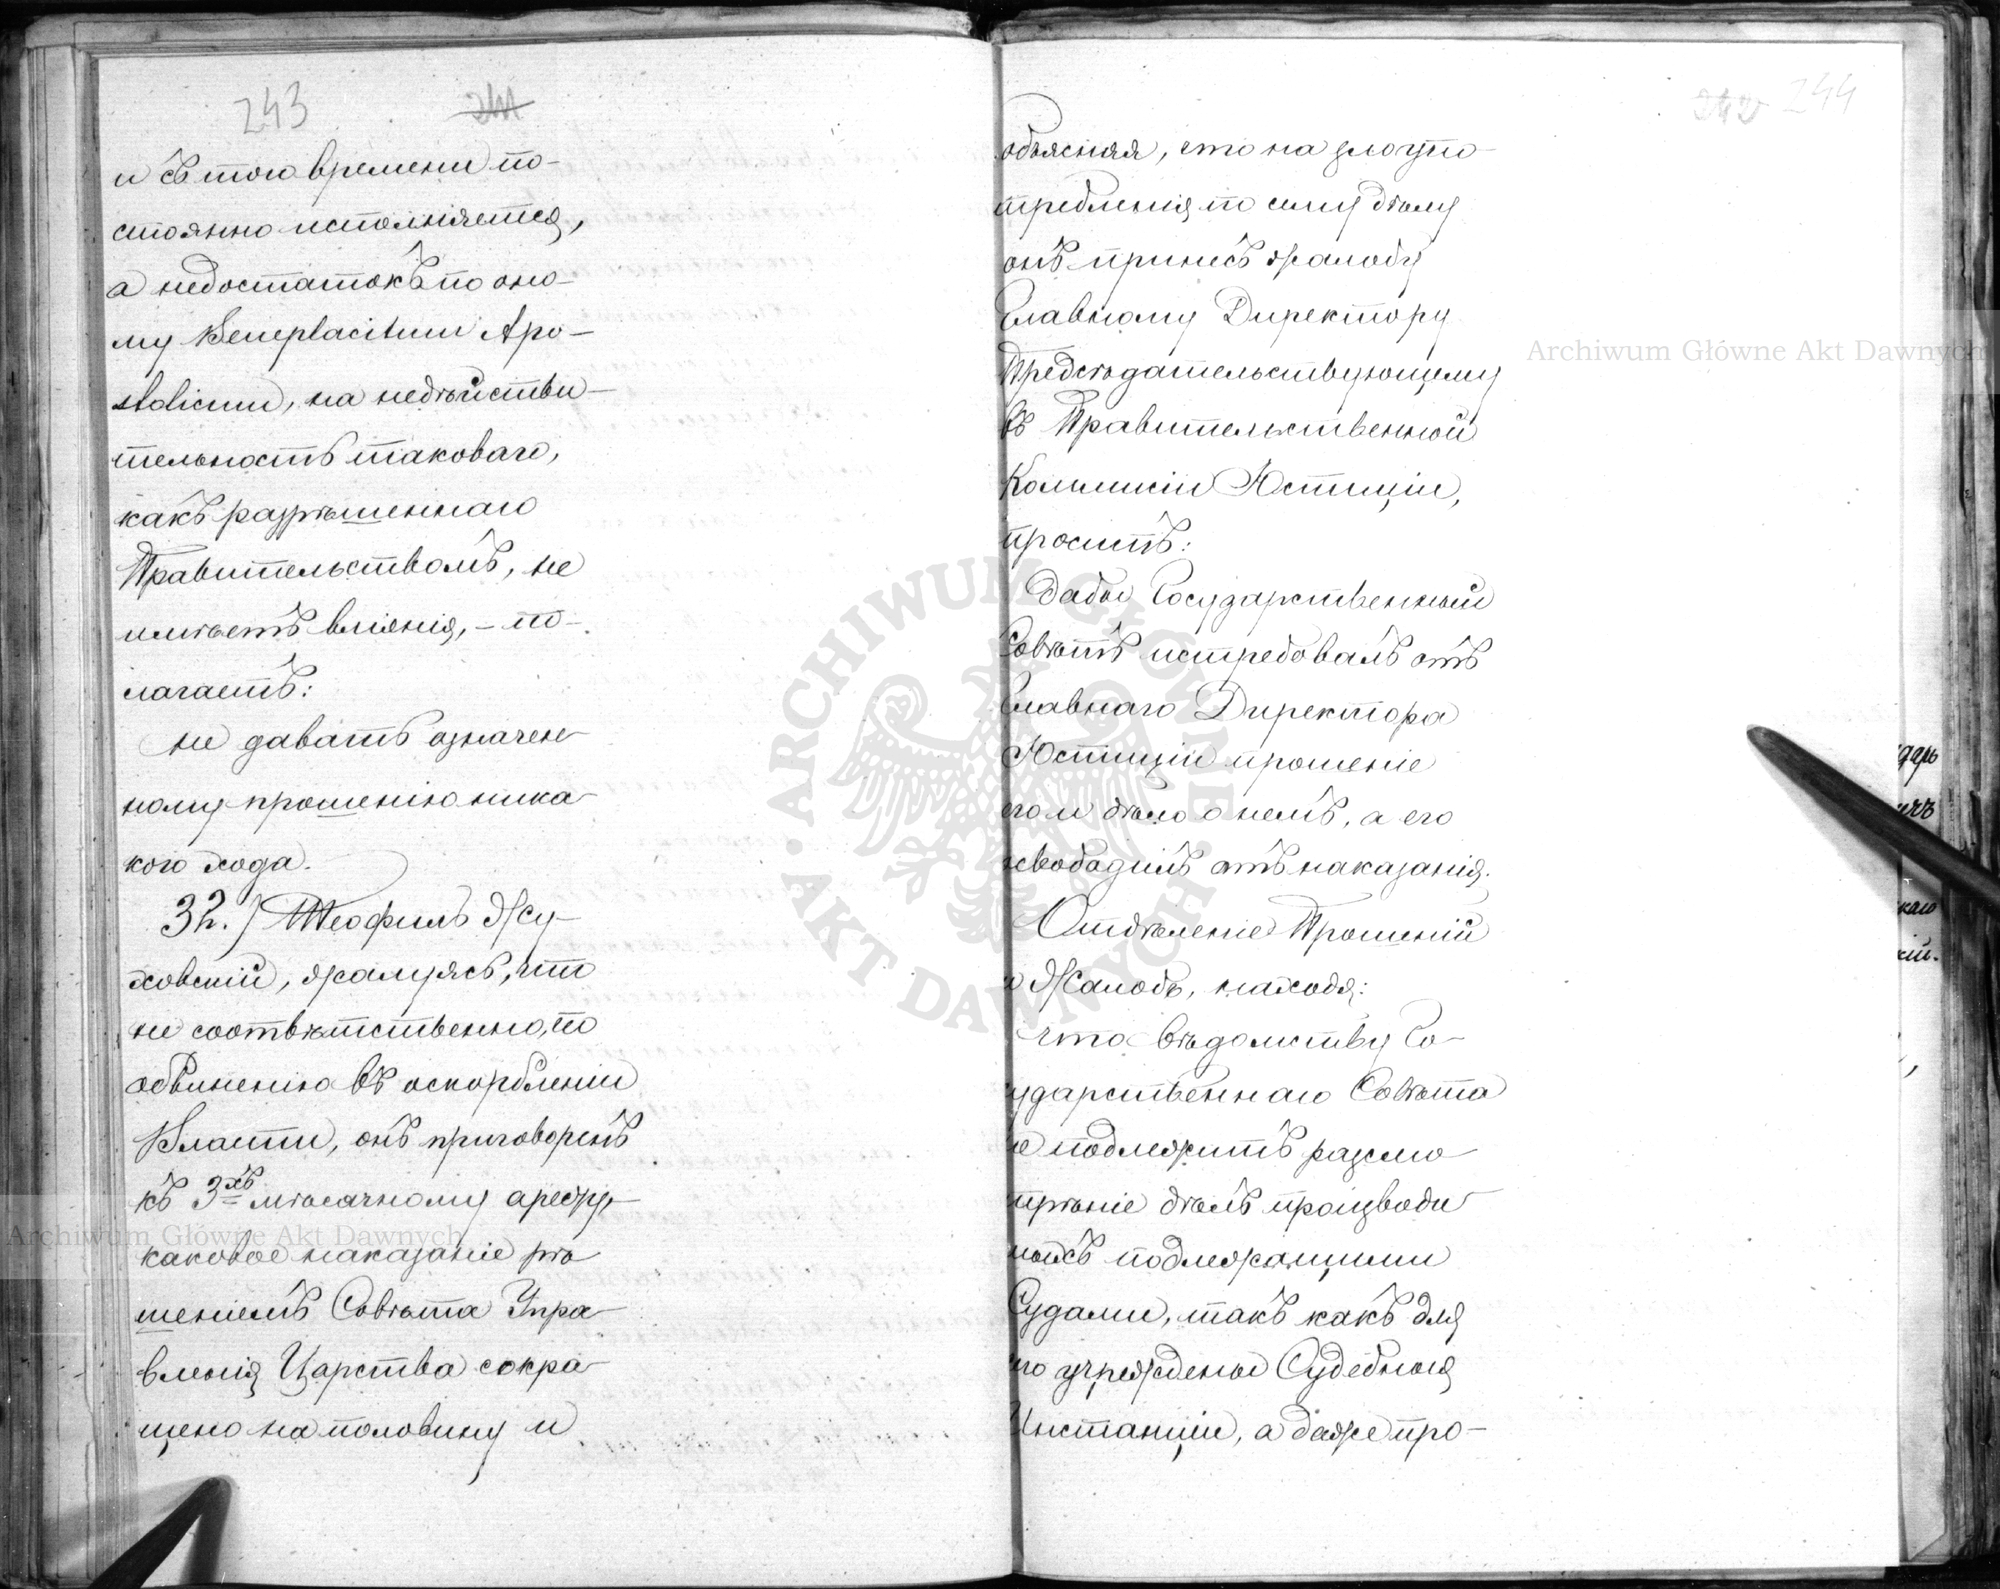 243 241
и съ того времени по-
стоянно исполняется,
а недостатокъ по оно-
му Beneplacitum Apo-
stolicum, на недѣйстви-
тельность таковаго,
какъ разрѣшеннаго
Правительствомъ, не
имѣетъ вліянія, – по-
лагаетъ:
не давать означен-
ному прошенію ника-
кого хода.
32.) Теофиль Жу-
ховскій, жалуясь, что
не соотвѣтственно, по
обвиненію въ оскорбленіи
Власти, онъ приговоренъ
къ 3хъ мѣсячному аресту,
каковое наказаніе рѣ-
шеніемъ Совѣта Упра-
вленія Царства сокра-
щено на половину и
242 244
объясняя, что на злоупо-
требленія по сему дѣлу
онъ принесъ жалобу
Главному Директору
Предсѣдательствующему
въ Правительственной
Коммисіи Юстиціи,
проситъ:
дабы Государственный
Совѣтъ истребовалъ отъ
Главнаго Директора
Юстиціи прошеніе
его и дѣло о немъ, а его
освободилъ отъ наказанія.
Отдѣленіе Прошеній
и Жалобъ, находя:
что вѣдомству Го-
сударственнаго Совѣта
не подлежитъ разсмо-
трѣніе дѣлъ производи-
мыхъ подлежащими
Судами, такъ какъ для
его учреждены Судебныя
Инстанціи, а даже про-
дарь
ичъ
каго
кій.
Archiwum Główne Akt Dawnych
Archiwum Główne Akt Dawnych
ARCHIWUM GŁÓWNE · AKT DAWNYCH ·